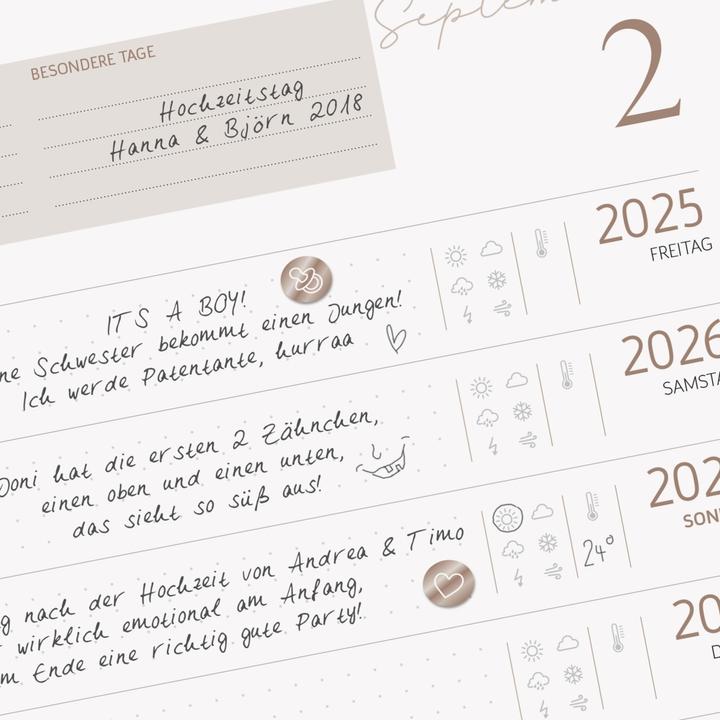 Septem
2
BESONDERE TAGE
Hochzeitstag
Hanna & Björn 2018
2025
FREITAG
IT'S A BOY!
ne Schwester bekommt einen Jungen!
Ich werde Patentante, hurraa
2026
SAMSTA
Joni hat die ersten 2 Zähnchen,
einen oben und einen unten,
das sieht so süß aus!
202
SONN
g nach der Hochzeit von Andrea & Timo
wirklich emotional am Anfang,
m Ende eine richtig gute Party!
24°
20
D